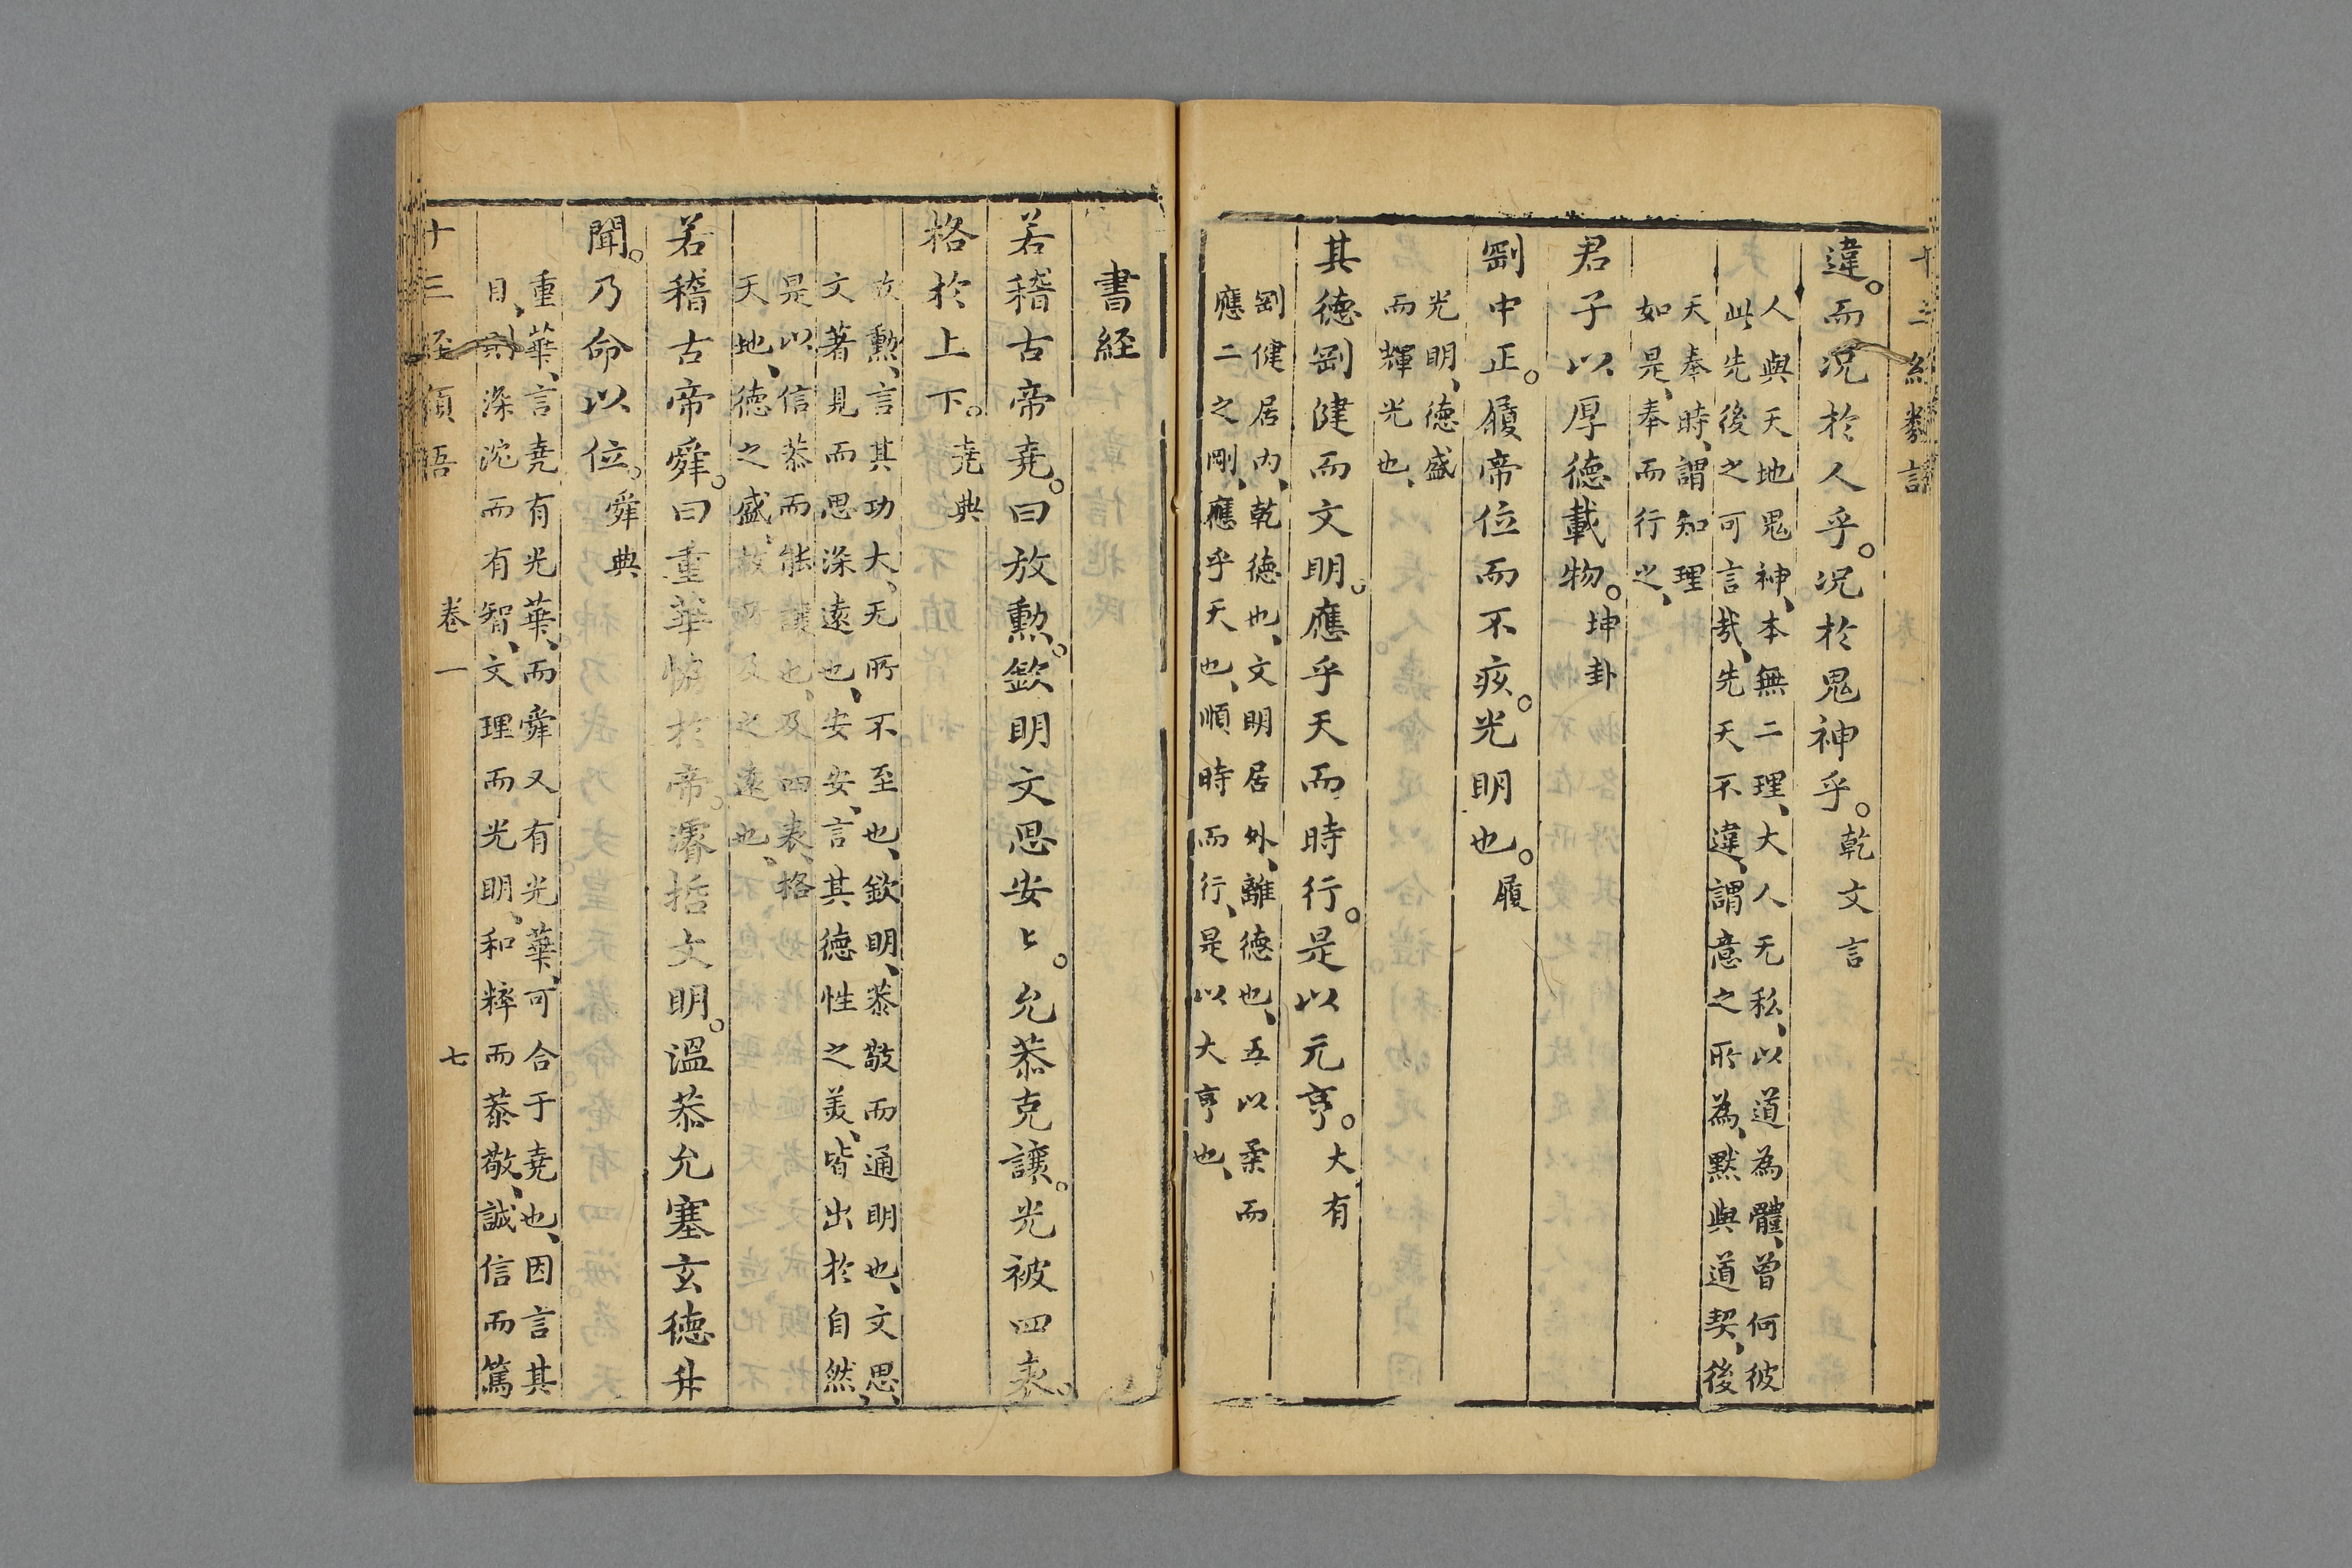 違。而況於人乎。況於鬼神乎。乾文言
人與天地鬼神、本無二理、大人无私、以道為體、曾何彼
此先後之可言㢤、先天不違、謂意之所為、默與道契、後
天奉時、謂知理
如是、奉而行之、
君子以厚德載物。坤卦
剛中正。履帝位而不疚。光明也。履
光明、德盛
而輝光也、
其德剛健而文明。應乎天而時行。是以元亨。大有
剛健居內、乾德也、文明居外、離德也、五以柔而
應二之剛、應乎天也、順時而行、是以大亨也、
書経
若稽古帝堯。曰放勲。欽明文思安〻。允恭克讓。光被四表。
格於上下。堯典
放勲、言其功大、无所不至也、欽明、恭敬而通明也、文思、
文著見而思深遠也、安安、言其德性之美、皆出於自然、
是以信恭而能讓也、及四表、格
天地、德之盛、故及之遠也、
若稽古帝舜。曰重華協於帝。濬哲文明。溫恭允塞玄德升
聞。乃命以位。舜典
重華、言堯有光華、而舜又有光華、可合于堯也、因言其
目、則深沈而有智、文理而光明、和粹而恭敬、誠信而篤
十三経類語 卷一 七